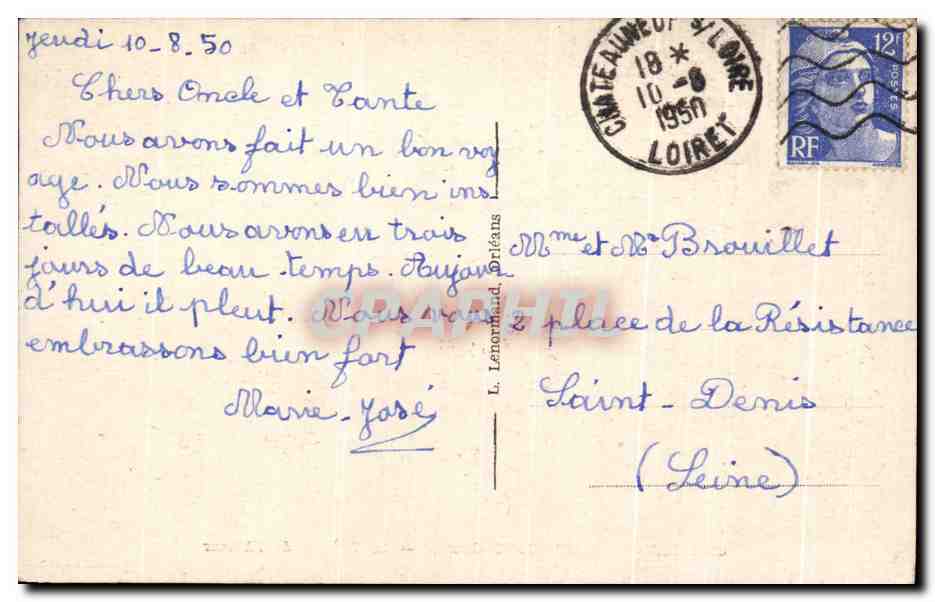 Jeudi 10-8.50
Chers Oncle et Tante
Nous avons fait un bon voy
age. Nous sommes bien ins
tallés. Nous avons eu trois
jours de beau temps. Aujour
d'hui il pleut. Nous vous
embrassons bien fort
Marie-José
L. Lenormand, Orléans
CHATEAUNEUF S/LOIRE
18 *
10 -8
1950
LOIRET
12F
POSTES
RF
Mme et Mr Brouillet
2 place de la Résistance
Saint-Denis
(Seine)
CPARHTI